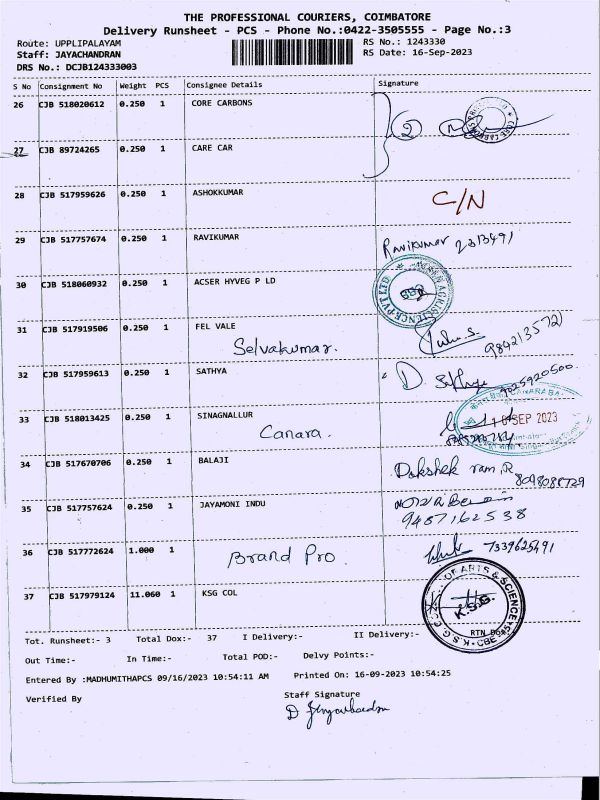 THE PROFESSIONAL COURIERS, COIMBATORE
Delivery Runsheet - PCS - Phone No.:0422-3505555 - Page No.:3
Route: UPPLIPALAYAM RS No.: 1243330
Staff: JAYACHANDRAN RS Date: 16-Sep-2023
DRS No.: DCJB124333003
S No Consignment No Weight PCS Consignee Details Signature
26 CJB 518020612 0.250 1 CORE CARBONS
27 CJB 89724265 0.250 1 CARE CAR
28 CJB 517959626 0.250 1 ASHOKKUMAR C/N
29 CJB 517757674 0.250 1 RAVIKUMAR Ravikumar
30 CJB 518060932 0.250 1 ACSER HYVEG P LD
31 CJB 517919506 0.250 1 FEL VALE
Selvakumar. 9842135721
32 CJB 517959613 0.250 1 SATHYA D. Sathya 9025920500
33 CJB 518013425 0.250 1 SINAGNALLUR SEP 2023
Canara.
34 CJB 517670706 0.250 1 BALAJI Dakshek ram.R
8048088729
35 CJB 517757624 0.250 1 JAYAMONI INDU
9487162538
36 CJB 517772624 1.000 1 Brand Pro. 7339625491
37 CJB 517979124 11.060 1 KSG COL ARTS & SCIENCE K.S.G.
Tot. Runsheet:- 3 Total Dox:- 37 I Delivery:- II Delivery:-
Out Time:- In Time:- Total POD:- Delvy Points:-
Entered By :MADHUMITHAPCS 09/16/2023 10:54:11 AM Printed On: 16-09-2023 10:54:25
Verified By Staff Signature